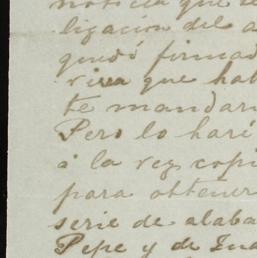 noticia que de
ligación del a
quedó firmad
risa que hab
te mandar
Pero lo haré
á la vez copi
para obtener
serie de alaba
Pepe y de Jua